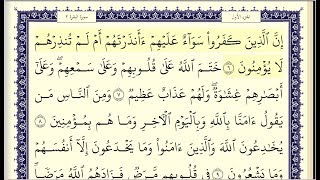 الجزء الأول سورة البقرة ٢
إِنَّ ٱلَّذِينَ كَفَرُوا۟ سَوَآءٌ عَلَيْهِمْ ءَأَنذَرْتَهُمْ أَمْ لَمْ تُنذِرْهُمْ
لَا يُؤْمِنُونَ ٦ خَتَمَ ٱللَّهُ عَلَىٰ قُلُوبِهِمْ وَعَلَىٰ سَمْعِهِمْ ۖ وَعَلَىٰٓ
أَبْصَٰرِهِمْ غِشَٰوَةٌ ۖ وَلَهُمْ عَذَابٌ عَظِيمٌ ٧ وَمِنَ ٱلنَّاسِ مَن
يَقُولُ ءَامَنَّا بِٱللَّهِ وَبِٱلْيَوْمِ ٱلْءَاخِرِ وَمَا هُم بِمُؤْمِنِينَ ٨
يُخَٰدِعُونَ ٱللَّهَ وَٱلَّذِينَ ءَامَنُوا۟ وَمَا يَخْدَعُونَ إِلَّآ أَنفُسَهُمْ
وَمَا يَشْعُرُونَ ٩ فِى قُلُوبِهِم مَّرَضٌ فَزَادَهُمُ ٱللَّهُ مَرَضًا